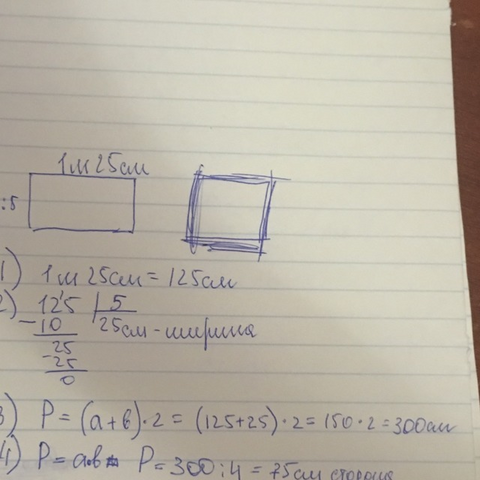 1м 25см
:5
1) 1м 25см = 125см
2) 125 | 5
-10 25см - ширина
25
-25
0
3) P = (a+b)·2 = (125+25)·2 = 150·2 = 300см
4) P = P = 300:4 = 75см сторона